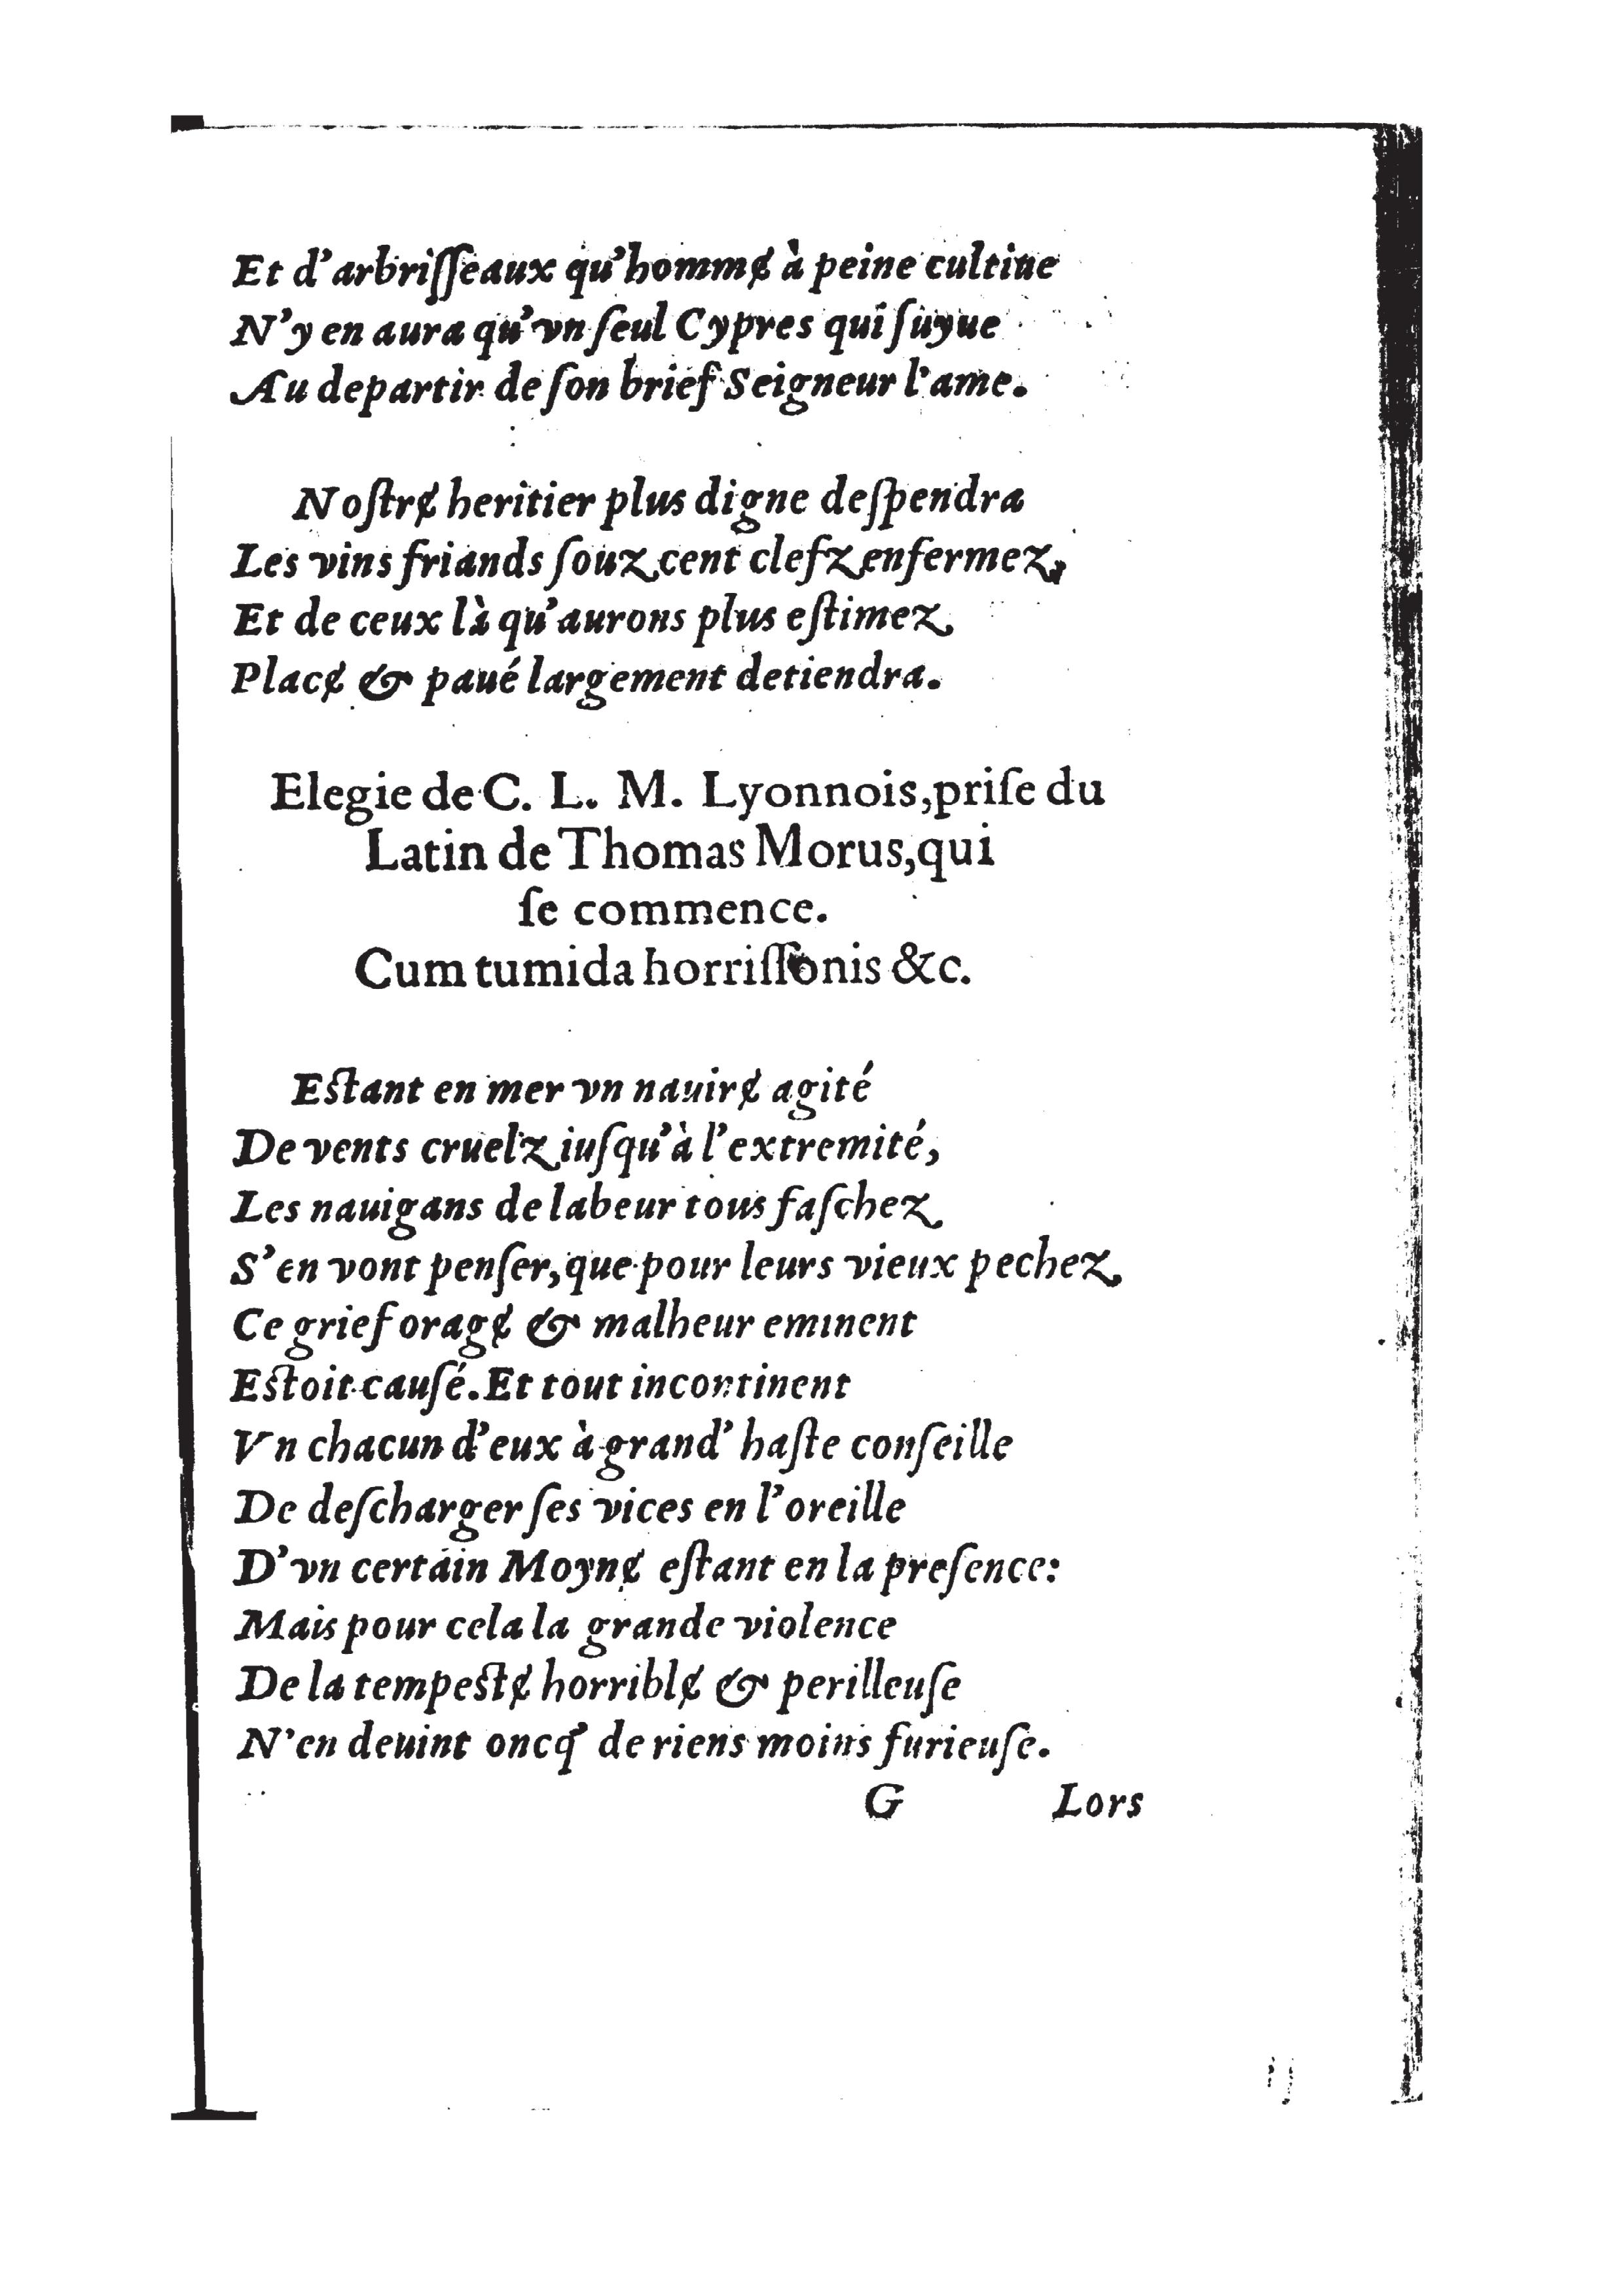 Et d'arbriſſeaux qu'hommɇ à peine cultiue
N'y en aura qu'vn ſeul Cypres qui ſuyue
Au departir de ſon brief Seigneur l'ame.
Noſtrɇ heritier plus digne deſpendra
Les vins friands ſouz cent clefz enfermez,
Et de ceux là qu'aurons plus eſtimez
Placɇ & paué largement detiendra.
Elegie de C. L. M. Lyonnois, priſe du
Latin de Thomas Morus, qui
ſe commence.
Cum tumida horriſſonis &c.
Eſtant en mer vn nauirɇ agité
De vents cruelz iuſqu'à l'extremité,
Les nauigans de labeur tous faſchez
S'en vont penſer, que pour leurs vieux pechez,
Ce grief oragɇ & malheur eminent
Eſtoit cauſé. Et tout incontinent
Vn chacun d'eux à grand' haſte conſeille
De deſcharger ſes vices en l'oreille
D'vn certain Moynɇ eſtant en la preſence:
Mais pour cela la grande violence
De la tempeſtɇ horriblɇ & perilleuſe
N'en deuint oncq' de riens moins furieuſe.
G Lors